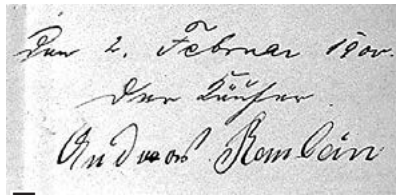 Den 2. Februar 1900.
Der Käufer
Andreas Rambein